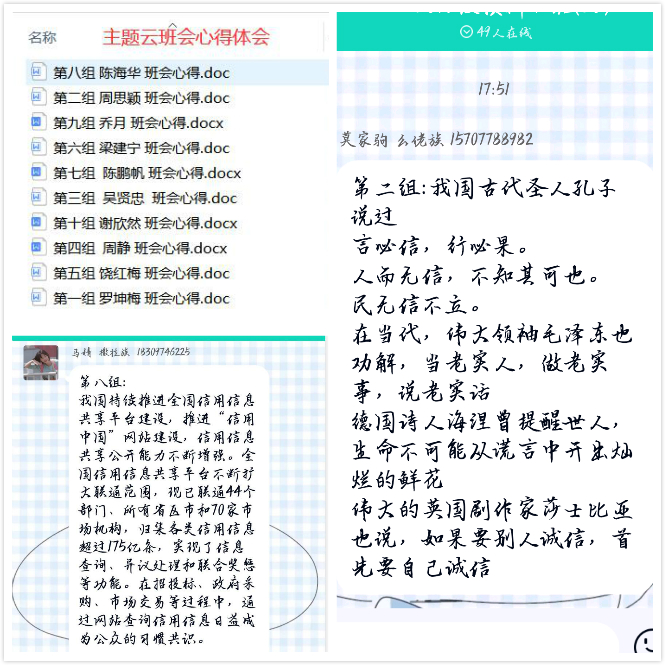 名称
主题云班会心得体会
第八组 陈海华 班会心得.doc
第二组 周思颖 班会心得.doc
第九组 乔月 班会心得.docx
第六组 梁建宁 班会心得.doc
第七组 陈鹏帆 班会心得.docx
第三组 吴贤忠 班会心得.doc
第十组 谢欣然 班会心得.docx
第四组 周静 班会心得.docx
第五组 饶红梅 班会心得.doc
第一组 罗坤梅 班会心得.doc
马婧 撒拉族 18309746225
第八组:
我国持续推进全国信用信息
共享平台建设，推进“信用
中国”网站建设，信用信息
共享公开能力不断增强。全
国信用信息共享平台不断扩
大联通范围，现已联通44个
部门、所有省区市和70家市
场机构，归集各类信用信息
超过175亿条，实现了信息
查询、异议处理和联合奖惩
等功能。在招投标、政府采
购、市场交易等过程中，通
过网站查询信用信息日益成
为公众的习惯共识。
49人在线
17:51
莫家驹 仫佬族 15707788982
第二组:我国古代圣人孔子
说过
言必信，行必果。
人而无信，不知其可也。
民无信不立。
在当代，伟大领袖毛泽东也
劝解，当老实人，做老实
事，说老实话
德国诗人海涅曾提醒世人，
生命不可能从谎言中开出灿
烂的鲜花
伟大的英国剧作家莎士比亚
也说，如果要别人诚信，首
先要自己诚信